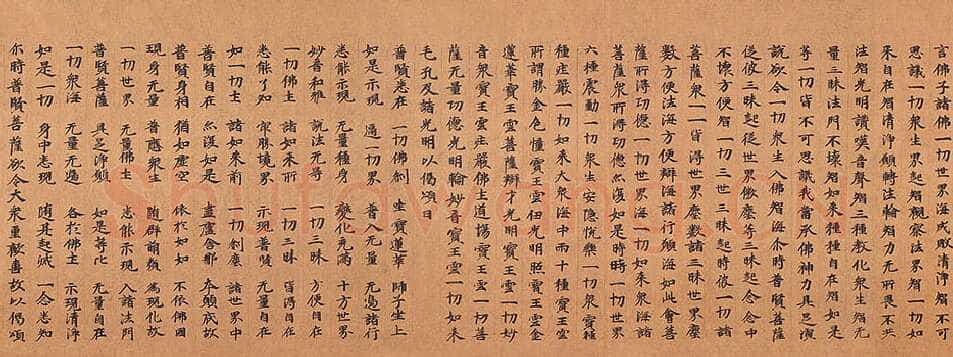 言佛子諸佛一切世界海成敗清淨智不可
思議一切眾生界起智觀察法界智一切如
來自在智清淨願轉法輪智力无所畏不共
法智光明讚嘆音聲智三種教化眾生智无
量三昧法門不壞智如來種種自在智如是
等一切皆不可思議我當承佛神力具足演
說欲令一切眾生入佛智海尒時普賢菩薩
從彼三昧起從世界微塵等三昧起念念中
不壞方便智一切三世三昧起時彼一切諸
菩薩眾一一皆得世界塵數諸三昧世界塵
數方便法海方便辯海諸行願海如此會菩
薩所得功德一切世界海一切如來海諸
菩薩眾所得功德亦復如是時時一切世界
六種震動一切眾生安隱快樂一切眾寶種
種莊嚴一切如來大眾海中雨十種寶王雲
所謂勝金色幢寶王雲佰光明照寶王雲金
蓮華寶王雲菩薩辯才光明寶王雲一切妙
音眾寶王雲莊嚴佛土道場寶王雲一切善
薩无量功德光明輪妙香寶王雲一切如來
毛孔及諸光明以偈頌曰
普賢悉在 一切佛剎 坐寶蓮華 師子坐上
如是示現 遍一切界 普入无量 无為諸行
悉能示現 无量種身 變化充滿 十方世界
妙音和雅 說法无㝵 一切三昧 方便自在
一切佛土 諸如來所 一切三昧 皆得自在
悉能了知 眾勝境界 示現普賢 无量自在
如一切土 諸如來前 一切剎塵 諸世界中
普賢自在 亦復如是 盧舍那 本願底故
普賢身相 猶如虛空 依於如如 不依佛國
現身无量 普應眾生 隨群萌類 為現化故
一切世界 无量佛土 悉能示現 入諸法門
普賢菩薩 具足淨願 如是等比 无量自在
一切眾海 无量无邊 各於佛土 示現清淨
如是一切 身中悉現 隨其起滅 一念悉知
尒時普賢菩薩欲令大眾重歡喜故以偈頌